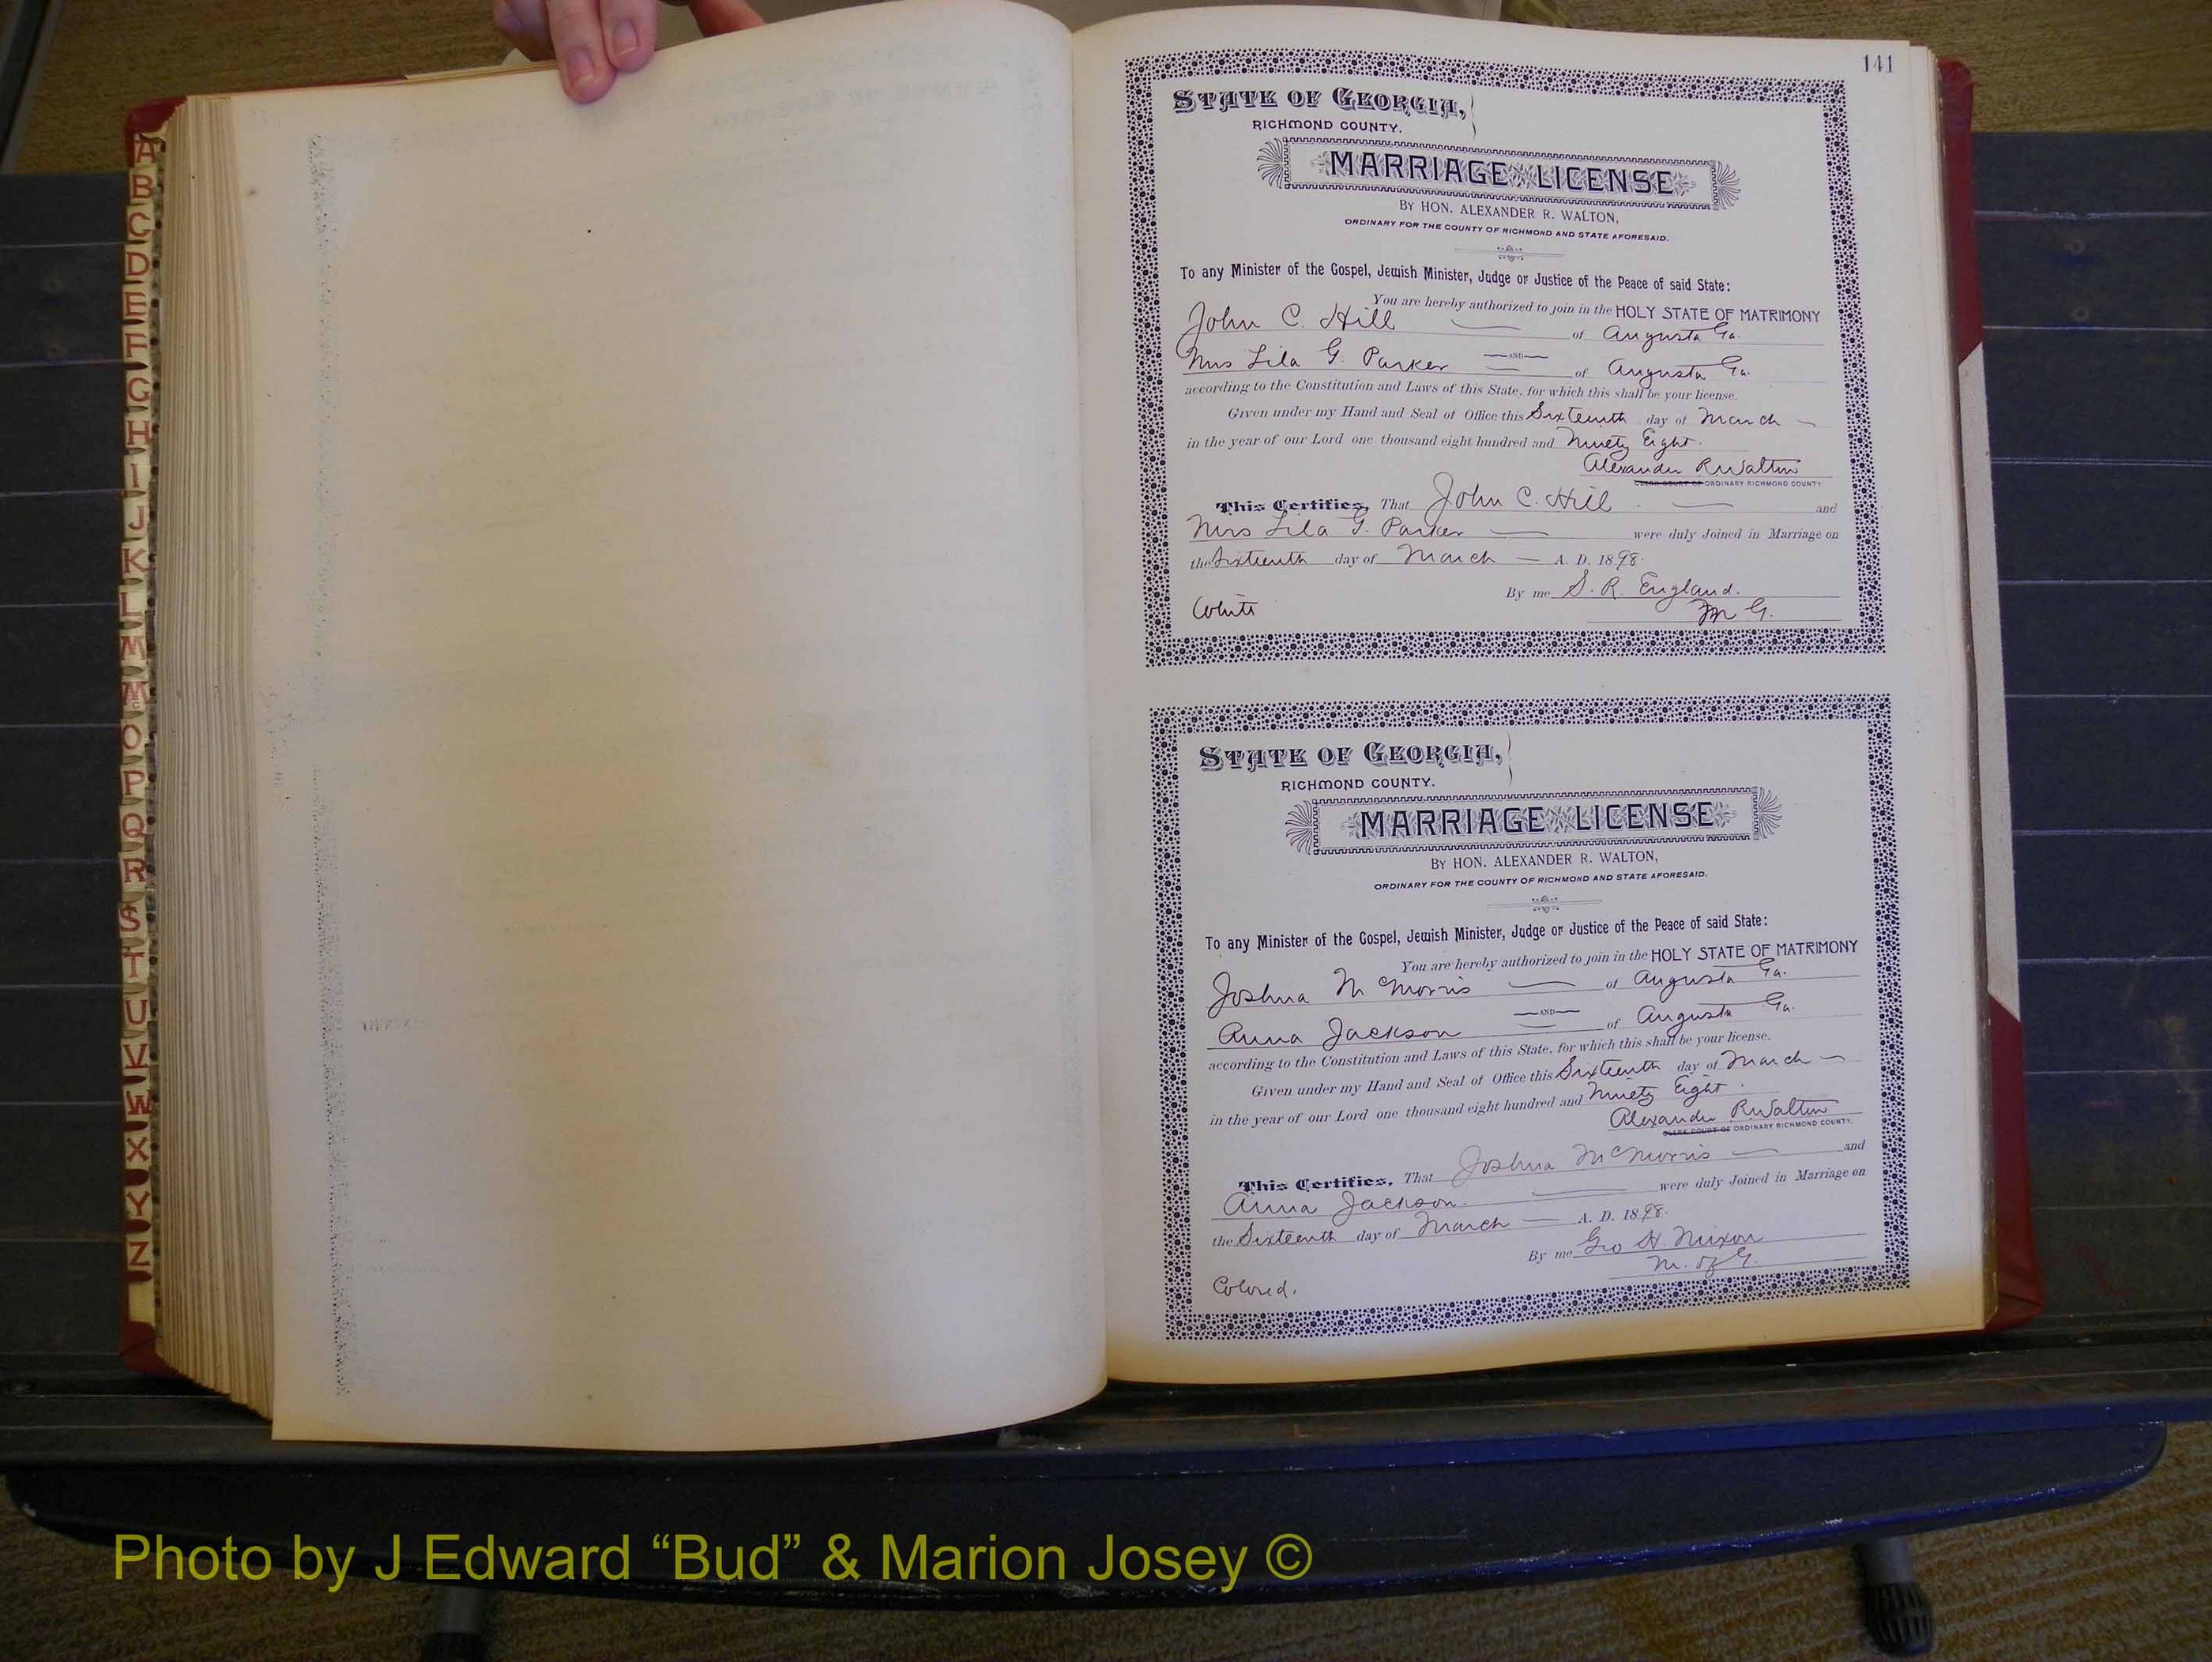 A
B
C
D
E
F
G
H
I
J
K
L
M
Mc
O
P
Q
R
S
T
U
V
W
X
Y
Z
141
STATE OF GEORGIA,
RICHMOND COUNTY.
MARRIAGE LICENSE
BY HON. ALEXANDER R. WALTON,
ORDINARY FOR THE COUNTY OF RICHMOND AND STATE AFORESAID.
To any Minister of the Gospel, Jewish Minister, Judge or Justice of the Peace of said State:
You are hereby authorized to join in the HOLY STATE OF MATRIMONY
John C. Hill of Augusta Ga.
AND
Mrs Lila G. Parker of Augusta Ga.
according to the Constitution and Laws of this State, for which this shall be your license.
Given under my Hand and Seal of Office this Sixteenth day of March
in the year of our Lord one thousand eight hundred and Ninety Eight.
Alexander R Walton
CLERK COURT OF ORDINARY RICHMOND COUNTY
This Certifies, That John C. Hill and
Mrs Lila G. Parker were duly Joined in Marriage on
the Sixteenth day of March A. D. 1898.
By me S. R. England.
White M G.
STATE OF GEORGIA,
RICHMOND COUNTY.
MARRIAGE LICENSE
BY HON. ALEXANDER R. WALTON,
ORDINARY FOR THE COUNTY OF RICHMOND AND STATE AFORESAID.
To any Minister of the Gospel, Jewish Minister, Judge or Justice of the Peace of said State:
You are hereby authorized to join in the HOLY STATE OF MATRIMONY
Joshua McMorris of Augusta Ga.
AND
Anna Jackson of Augusta Ga.
according to the Constitution and Laws of this State, for which this shall be your license.
Given under my Hand and Seal of Office this Sixteenth day of March
in the year of our Lord one thousand eight hundred and Ninety Eight.
Alexander R Walton
CLERK COURT OF ORDINARY RICHMOND COUNTY.
This Certifies, That Joshua McMorris and
Anna Jackson. were duly Joined in Marriage on
the Sixteenth day of March A. D. 1898.
By me Geo H. Nixon
M. of G.
Colored.
Photo by J Edward “Bud” & Marion Josey ©